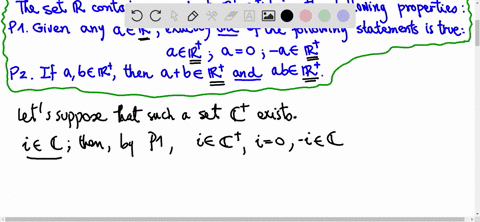 The set ℝ conta
owing properties:
P1. Given any a∈ℝ, exactly one of the following statements is true:
a∈ℝ⁺; a=0; -a∈ℝ⁺
P2. If a,b∈ℝ⁺, then a+b∈ℝ⁺ and ab∈ℝ⁺.
Let's suppose that such a set ℂ⁺ exists.
i∈ℂ; then, by P1, i∈ℂ⁺, i=0, -i∈ℂ